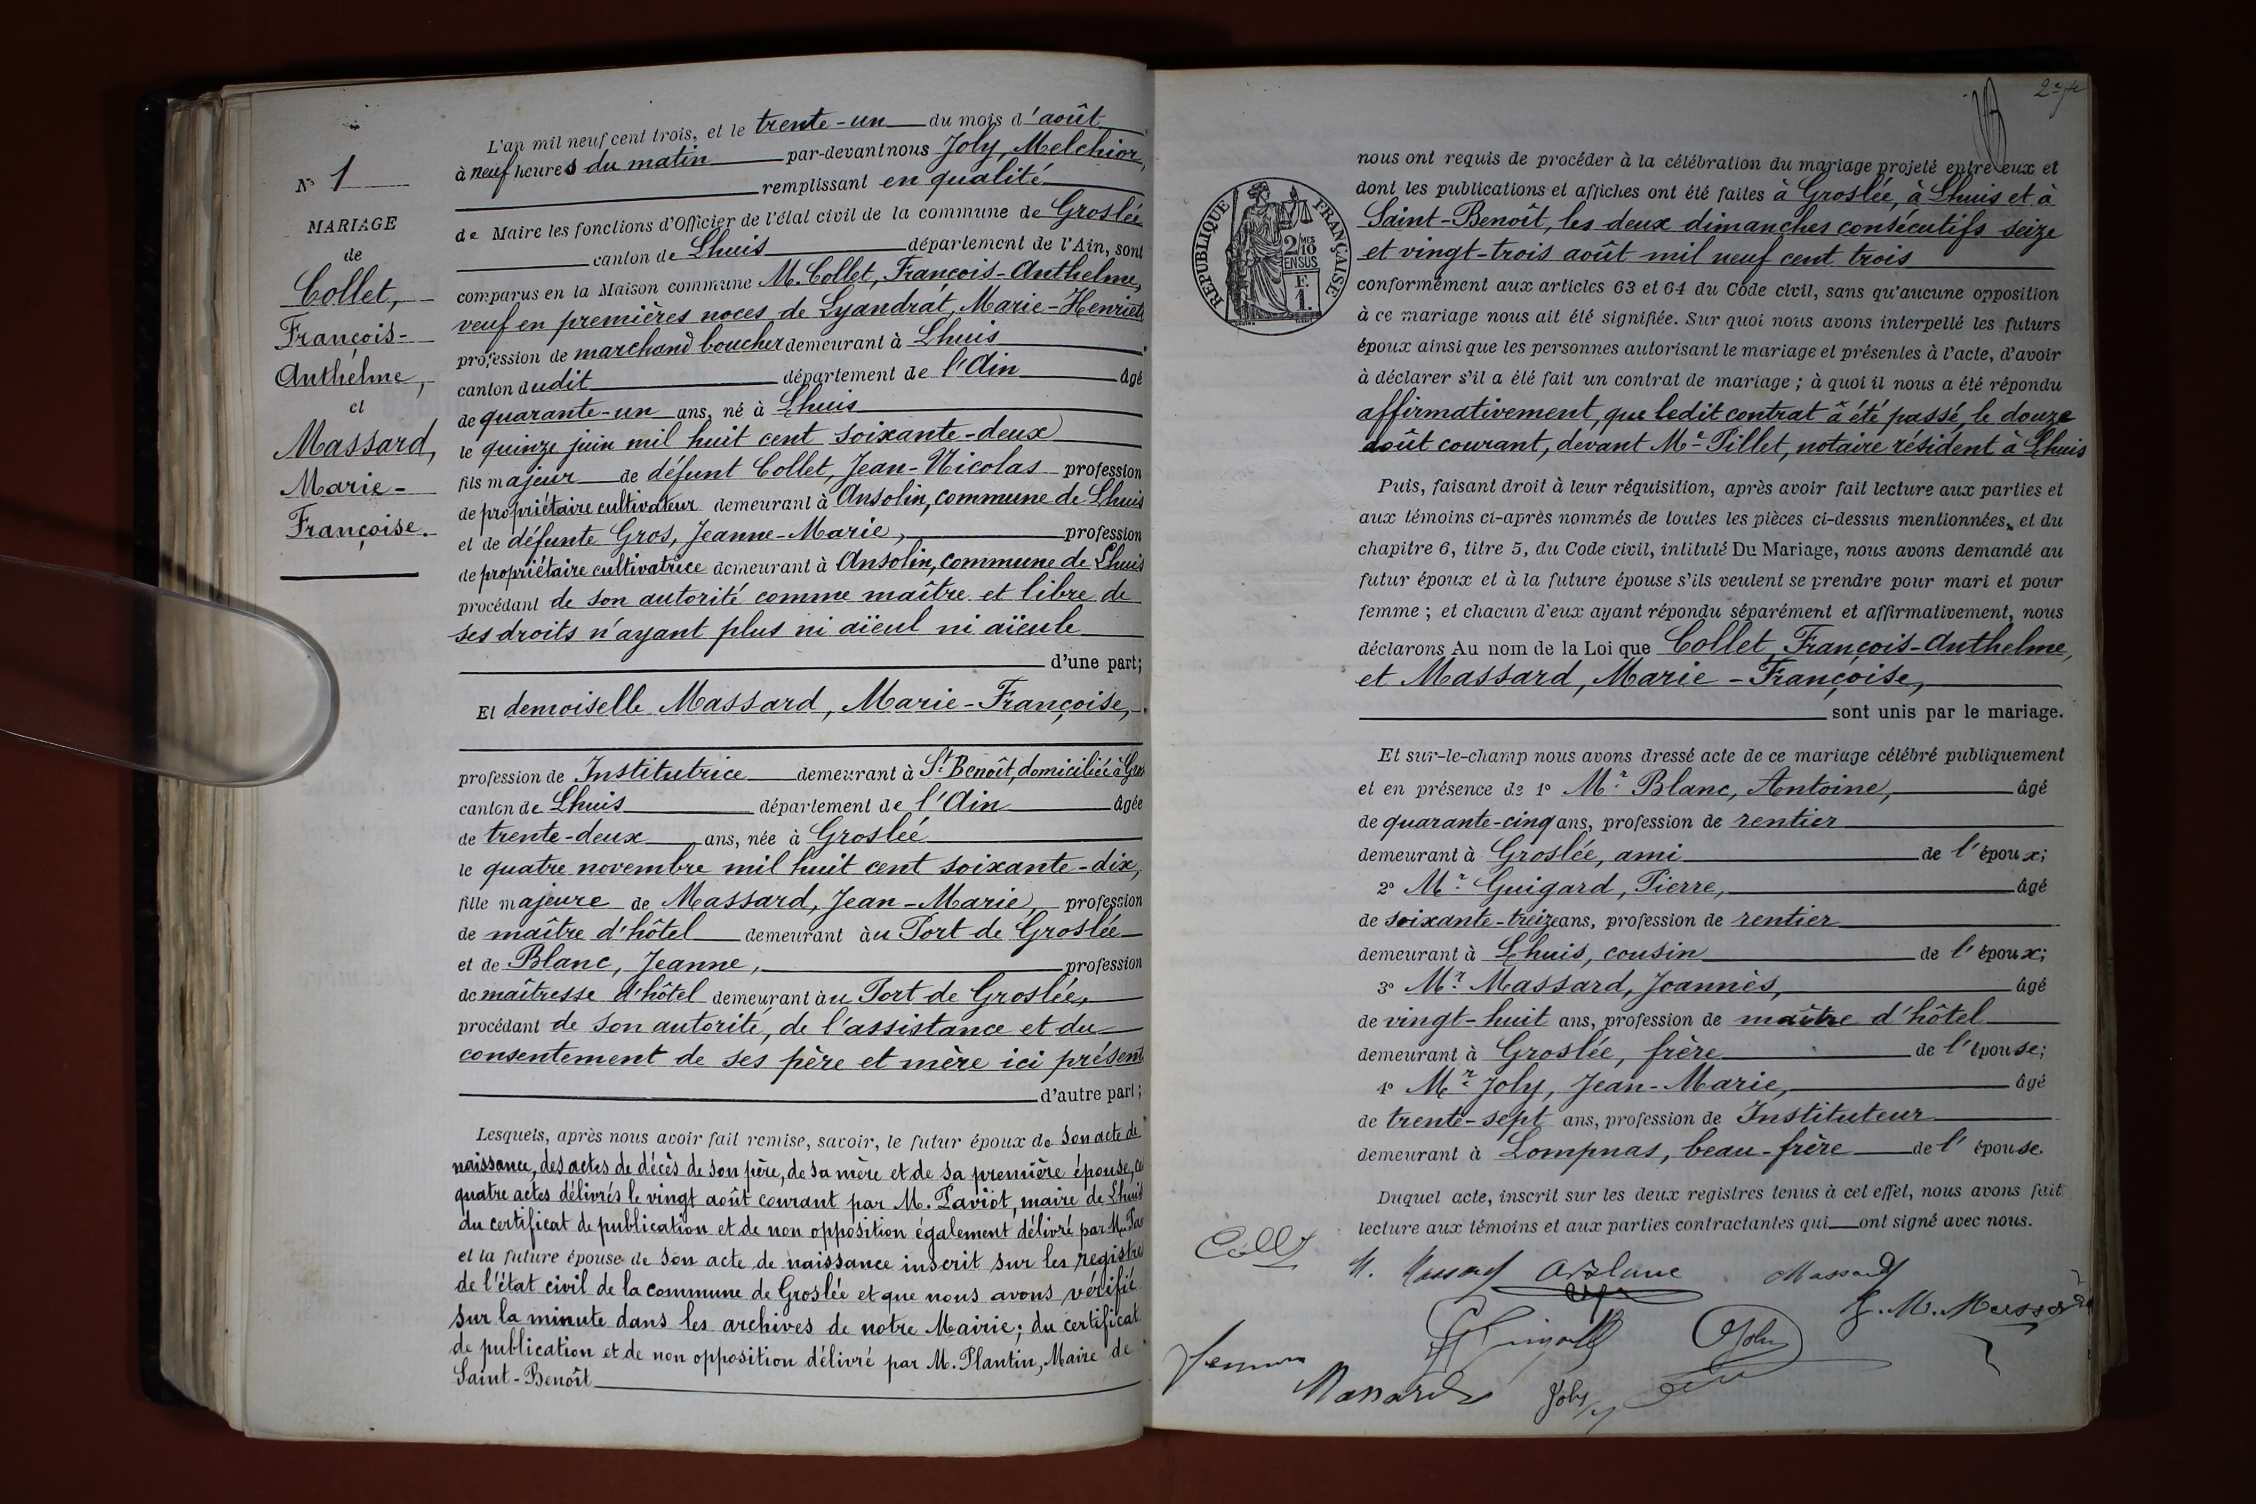 N° 1
MARIAGE
de
Collet,
François-
Anthelme,
et
Massard,
Marie-
Françoise.
L'an mil neuf cent trois, et le trente-un du mois d'août
à neuf heures du matin par-devant nous Joly, Melchior,
remplissant en qualité
de Maire les fonctions d'Officier de l'état civil de la commune de Groslée
canton de Lhuis département de l'Ain, sont
comparus en la Maison commune M. Collet, François-Anthelme,
veuf en premières noces de Lyandrat, Marie-Henriette
profession de marchand boucher demeurant à Lhuis
canton dudit département de l'Ain âgé
de quarante-un ans, né à Lhuis
le quinze juin mil huit cent soixante-deux
fils majeur de défunt Collet, Jean-Nicolas profession
de propriétaire cultivateur demeurant à Ansolin, commune de Lhuis
et de défunte Gros, Jeanne-Marie, profession
de propriétaire cultivatrice demeurant à Ansolin, commune de Lhuis
procédant de son autorité comme maître et libre de
ses droits n'ayant plus ni aïeul ni aïeule
d'une part;
Et demoiselle Massard, Marie-Françoise,
profession de Institutrice demeurant à St Benoît, domiciliée à Gros
canton de Lhuis département de l'Ain âgée
de trente-deux ans, née à Groslée
le quatre novembre mil huit cent soixante-dix,
fille majeure de Massard, Jean-Marie, profession
de maître d'hôtel demeurant àu Port de Groslée
et de Blanc, Jeanne, profession
de maîtresse d'hôtel demeurant àu Port de Groslée,
procédant de son autorité, de l'assistance et du
consentement de ses père et mère ici présent
d'autre part;
Lesquels, après nous avoir fait remise, savoir, le futur époux de son acte de
naissance, des actes de décès de son père, de sa mère et de sa première épouse, ce
quatre actes délivrés le vingt août courant par M. Paviot, maire de Lhuis
du certificat de publication et de non opposition également délivré par M. Pav
et la future épouse de son acte de naissance inscrit sur les registre
de l'état civil de la commune de Groslée et que nous avons vérifié
sur la minute dans les archives de notre Mairie; du certificat
de publication et de non opposition délivré par M. Plantin, Maire de
Saint-Benoît
RÉPUBLIQUE FRANÇAISE
2 MES
10
EN SUS
F.
1.
nous ont requis de procéder à la célébration du mariage projeté entre eux et
dont les publications et affiches ont été faites à Groslée, à Lhuis et à
Saint-Benoît, les deux dimanches consécutifs seize
et vingt-trois août mil neuf cent trois
conformément aux articles 63 et 64 du Code civil, sans qu'aucune opposition
à ce mariage nous ait été signifiée. Sur quoi nous avons interpellé les futurs
époux ainsi que les personnes autorisant le mariage et présentes à l'acte, d'avoir
à déclarer s'il a été fait un contrat de mariage; à quoi il nous a été répondu
affirmativement, que ledit contrat a été passé, le douze
août courant, devant Me Pillet, notaire résident à Lhuis
Puis, faisant droit à leur réquisition, après avoir fait lecture aux parties et
aux témoins ci-après nommés de toutes les pièces ci-dessus mentionnées, et du
chapitre 6, titre 5, du Code civil, intitulé Du Mariage, nous avons demandé au
futur époux et à la future épouse s'ils veulent se prendre pour mari et pour
femme; et chacun d'eux ayant répondu séparément et affirmativement, nous
déclarons Au nom de la Loi que Collet, François-Anthelme,
et Massard, Marie-Françoise,
sont unis par le mariage.
Et sur-le-champ nous avons dressé acte de ce mariage célébré publiquement
et en présence de 1° Mr Blanc, Antoine, âgé
de quarante-cinq ans, profession de rentier
demeurant à Groslée, ami de l'époux;
2° Mr Guigard, Pierre, âgé
de soixante-treize ans, profession de rentier
demeurant à Lhuis, cousin de l'époux;
3° Mr Massard, Joannès, âgé
de vingt-huit ans, profession de maître d'hôtel
demeurant à Groslée, frère de l'épouse;
4° Mr Joly, Jean-Marie, âgé
de trente-sept ans, profession de Instituteur
demeurant à Lompnas, beau-frère de l'épouse.
Duquel acte, inscrit sur les deux registres tenus à cet effet, nous avons fait
lecture aux témoins et aux parties contractantes qui ont signé avec nous.
Collet
M. Massard ABlanc Massard
J. M. Massard
Joly
Massard Joly